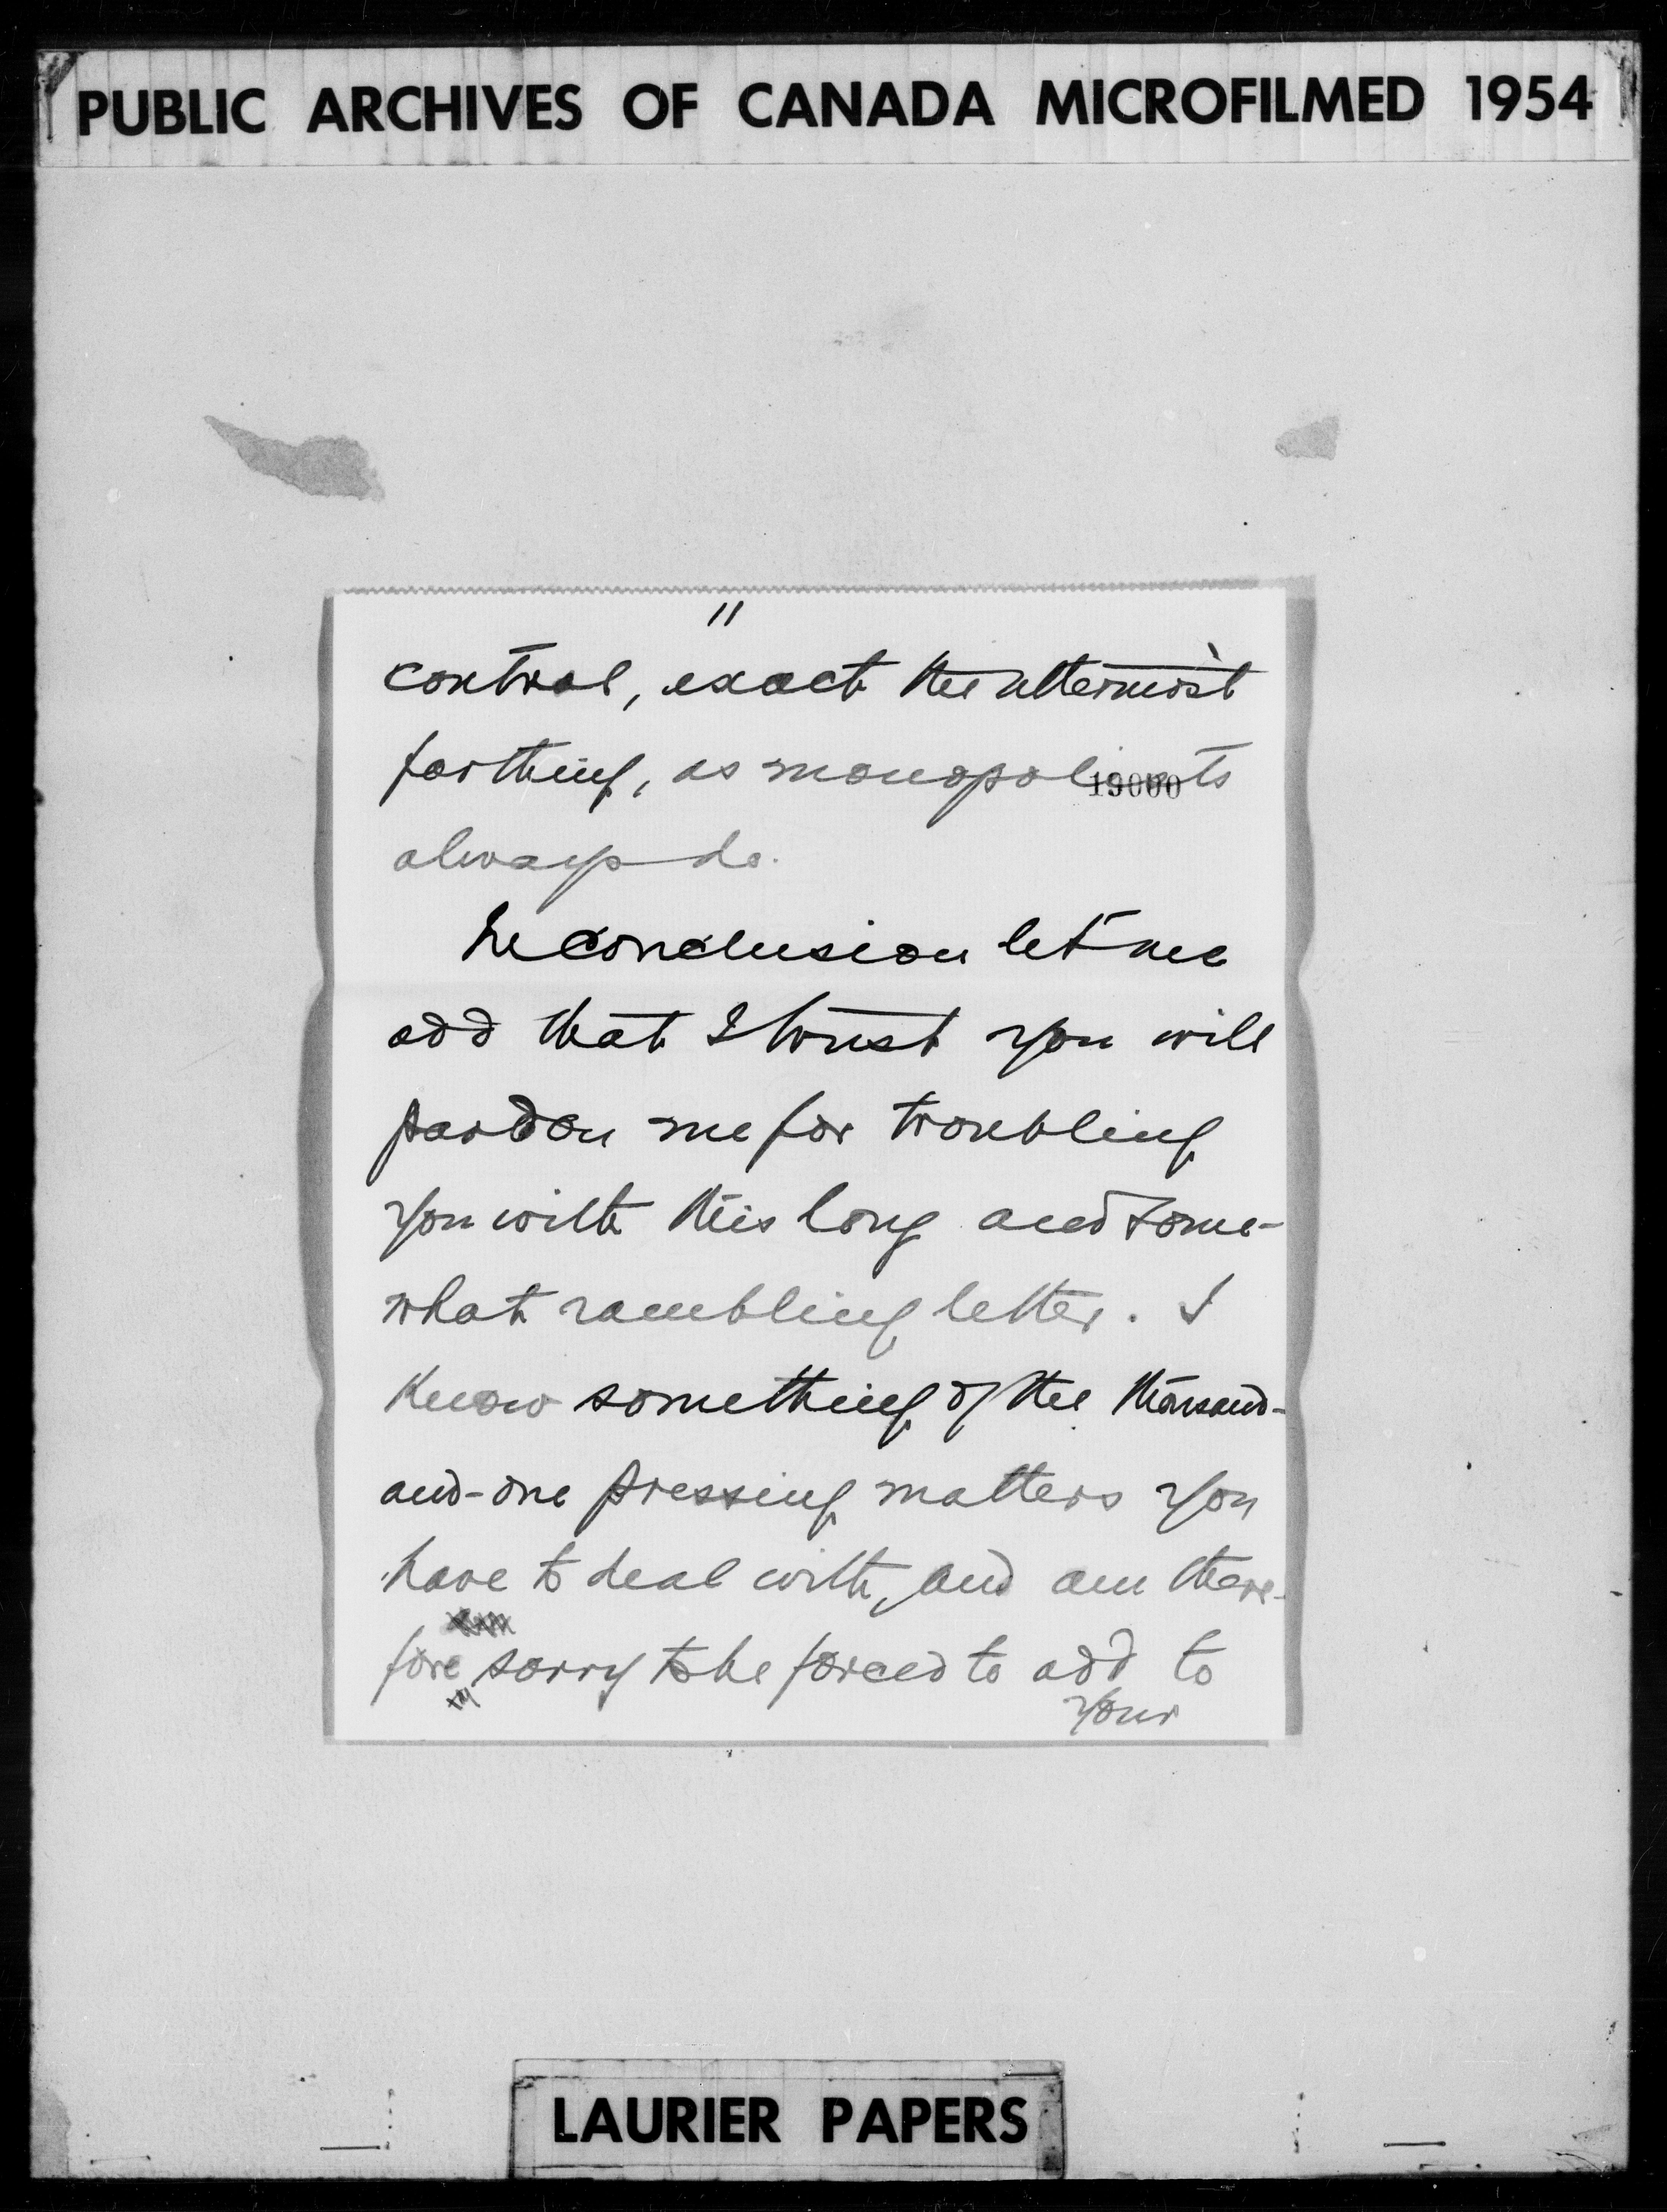 PUBLIC ARCHIVES OF CANADA MICROFILMED 1954
11
control, exact the uttermost
farthing, as monopolists
19000
always do.
In conclusion let me
add that I trust you will
pardon me for troubling
you with this long and some-
what rambling letter. I
know something of the thousand-
and-one pressing matters you
have to deal with, and am there-
fore sorry to be forced to add to
your
LAURIER PAPERS